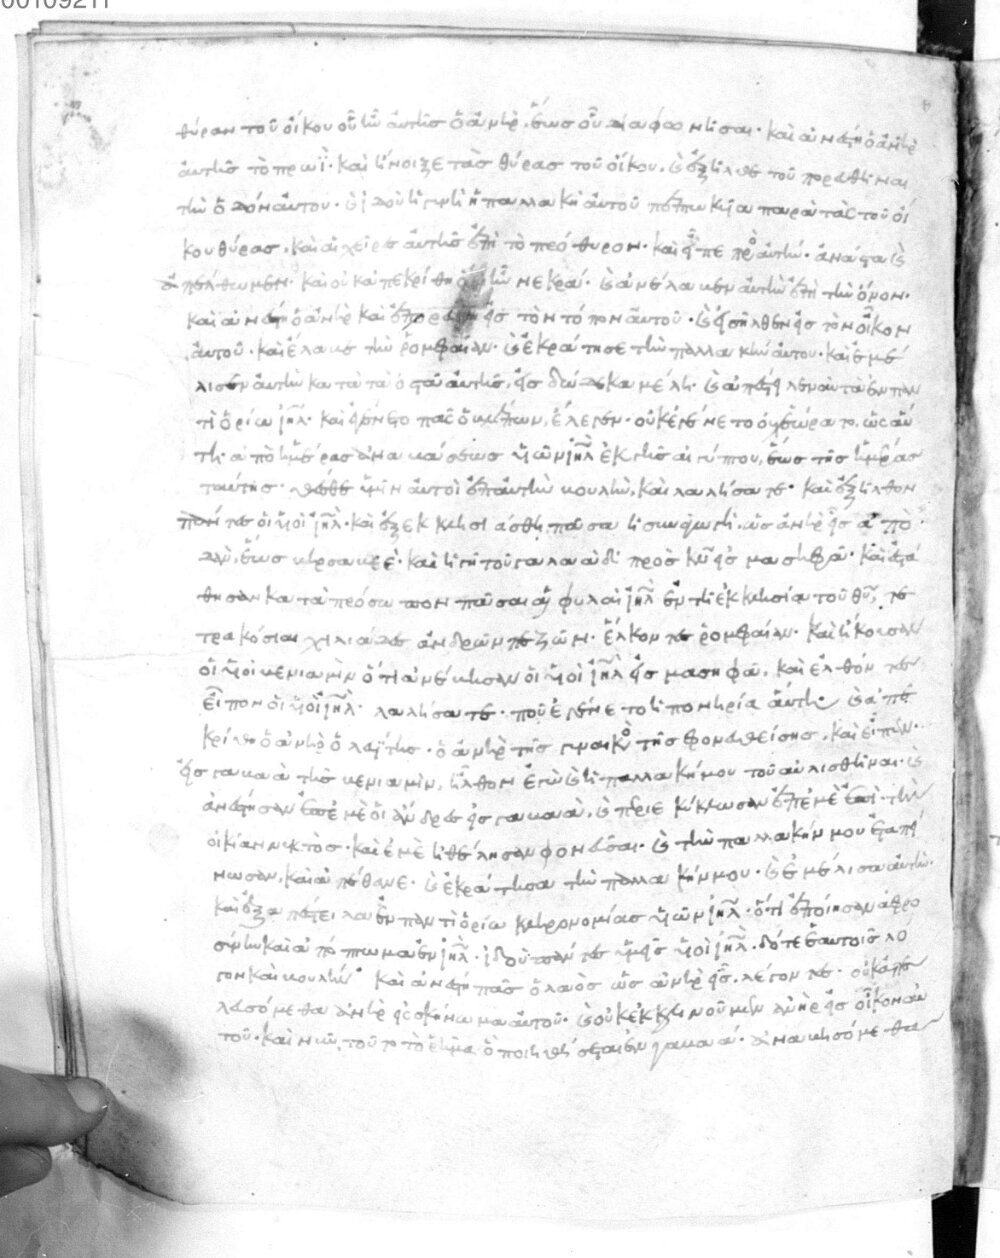 00109211
θύραν τοῦ οἴκου οὗ ἦν αὐτῆς ὁ ἀνὴρ, ἕως οὗ διαφαυνῆσαι· καὶ ἀνέστη ὁ ἀνὴρ
αὐτῆς τὸ πρωῒ· καὶ ἤνοιξε τὰς θύρας τοῦ οἴκου, καὶ ἐξῆλθε τοῦ πορευθῆναι
τὴν ὁδὸν αὐτοῦ· καὶ ἰδοὺ ἡ γυνὴ ἡ παλλακὴ αὐτοῦ πεπτωκυῖα παρὰ τὰς τοῦ οἴ
κου θύρας, καὶ αἱ χεῖρες αὐτῆς ἐπὶ τὸ πρόθυρον· καὶ εἶπε πρὸς αὐτήν· ἀνάστα καὶ
ἀπέλθωμεν· καὶ οὐκ ἀπεκρίθη ὅτι ἦν νεκρά· καὶ ἀνέλαβεν αὐτὴν ἐπὶ τὴν ὄνον·
καὶ ἀνέστη ὁ ἀνὴρ καὶ ἐπορεύθη εἰς τὸν τόπον αὐτοῦ· καὶ εἰσῆλθεν εἰς τὸν οἶκον
αὐτοῦ· καὶ ἔλαβε τὴν ῥομφαίαν· καὶ ἐκράτησε τὴν παλλακὴν αὐτοῦ· καὶ ἐμέ
λισεν αὐτὴν κατὰ τὰ ὀστᾶ αὐτῆς, εἰς δώδεκα μέλη· καὶ ἀπέστειλεν αὐτὰ ἐν παν
τὶ ὁρίω ἰηλ· καὶ ἐγένετο πᾶς ὁ βλέπων, ἔλεγεν· οὐκ ἐγένετο οὐχ ἑώρατο, ὡς αὕ
τη ἀπὸ ἡμέρας ἀναβάσεως υἱῶν ἰηλ ἐκ γῆς αἰγύπου, ἕως τῆς ἡμέρας
ταύτης· θέσθε ὑμῖν αὐτοὶ ἐπ αὐτὴν βουλὴν, καὶ λαλήσατε· καὶ ἐξῆλθον
πάντες οἱ υἱοὶ ἰηλ· καὶ ἐξεκκλησιάσθη πᾶσα ἡ συναγωγὴ, ὡς ἀνὴρ εἷς ἀπὸ
δὰν, ἕως βηρσαβεέ· καὶ ἡ γῆ τοῦ γαλαὰδ πρὸς κν εἰς μασσηφά· καὶ ἐστά
θησαν κατὰ πρόσωπον πᾶσαι αἱ φυλαὶ ἰηλ ἐν τῇ ἐκκλησία τοῦ θυ, τε
τρακόσιαι χιλιάδες ἀνδρῶν πεζῶν· ἕλκοντες ῥομφαίαν· καὶ ἤκουσαν
οἱ υἱοὶ βενιαμὶν ὅτι ἀνέβησαν οἱ υἱοὶ ἰηλ εἰς μασηφὰ, καὶ ἐλθόντες
εἶπον οἱ υἱοὶ ἰηλ· λαλήσατε· ποῦ ἐγένετο ἡ πονηρία αὕτη· καὶ ἀπε
κρίθη ὁ ἀνὴρ ὁ λευίτης· ὁ ἀνὴρ τῆς γυναικὸς τῆς φονευθείσης, καὶ εἶπεν·
εἰς γαβαὰ τῆς βενιαμὶν, ἦλθον ἐγὼ καὶ ἡ παλλακή μου τοῦ αὐλισθῆναι· καὶ
ἀνέστησαν ἐπ' ἐμὲ οἱ ἄνδρες εἰς γαβαὰ, καὶ περιεκύκλωσαν ἐπ ἐμὲ ἐπὶ τὴν
οἰκίαν νυκτός· καὶ ἐμὲ ἠθέλησαν φονεῦσαι· καὶ τὴν παλλακήν μου ἐταπεί
νωσαν, καὶ ἀπέθανε· καὶ ἐκράτησα τὴν παλλακήν μου· καὶ ἐμέλισα αὐτήν·
καὶ ἐξαπέστειλα ἐν παντὶ ὁρίω κληρονομίας υἱῶν ἰηλ· ὅτι ἐποίησαν ἀφρο
σύνην καὶ ἀπόπτωμα ἐν ἰηλ· ἰδοὺ πάντες ὑμεῖς υἱοὶ ἰηλ· δότε ἑαυτοῖς λό
γον καὶ βουλήν· καὶ ἀνέστη πᾶς ὁ λαὸς ὡς ἀνὴρ εἷς, λέγοντες· οὐκ ἀπε
λευσόμεθα ἀνὴρ εἰς σκήνωμα αὐτοῦ· καὶ οὐκ ἐκκλινοῦμεν ἀνὴρ εἰς οἶκον αὐ
τοῦ· καὶ νῦν, τοῦτο τὸ ῥῆμα ὃ ποιηθήσεται ἐν γαβαά· ἀναβησόμεθα